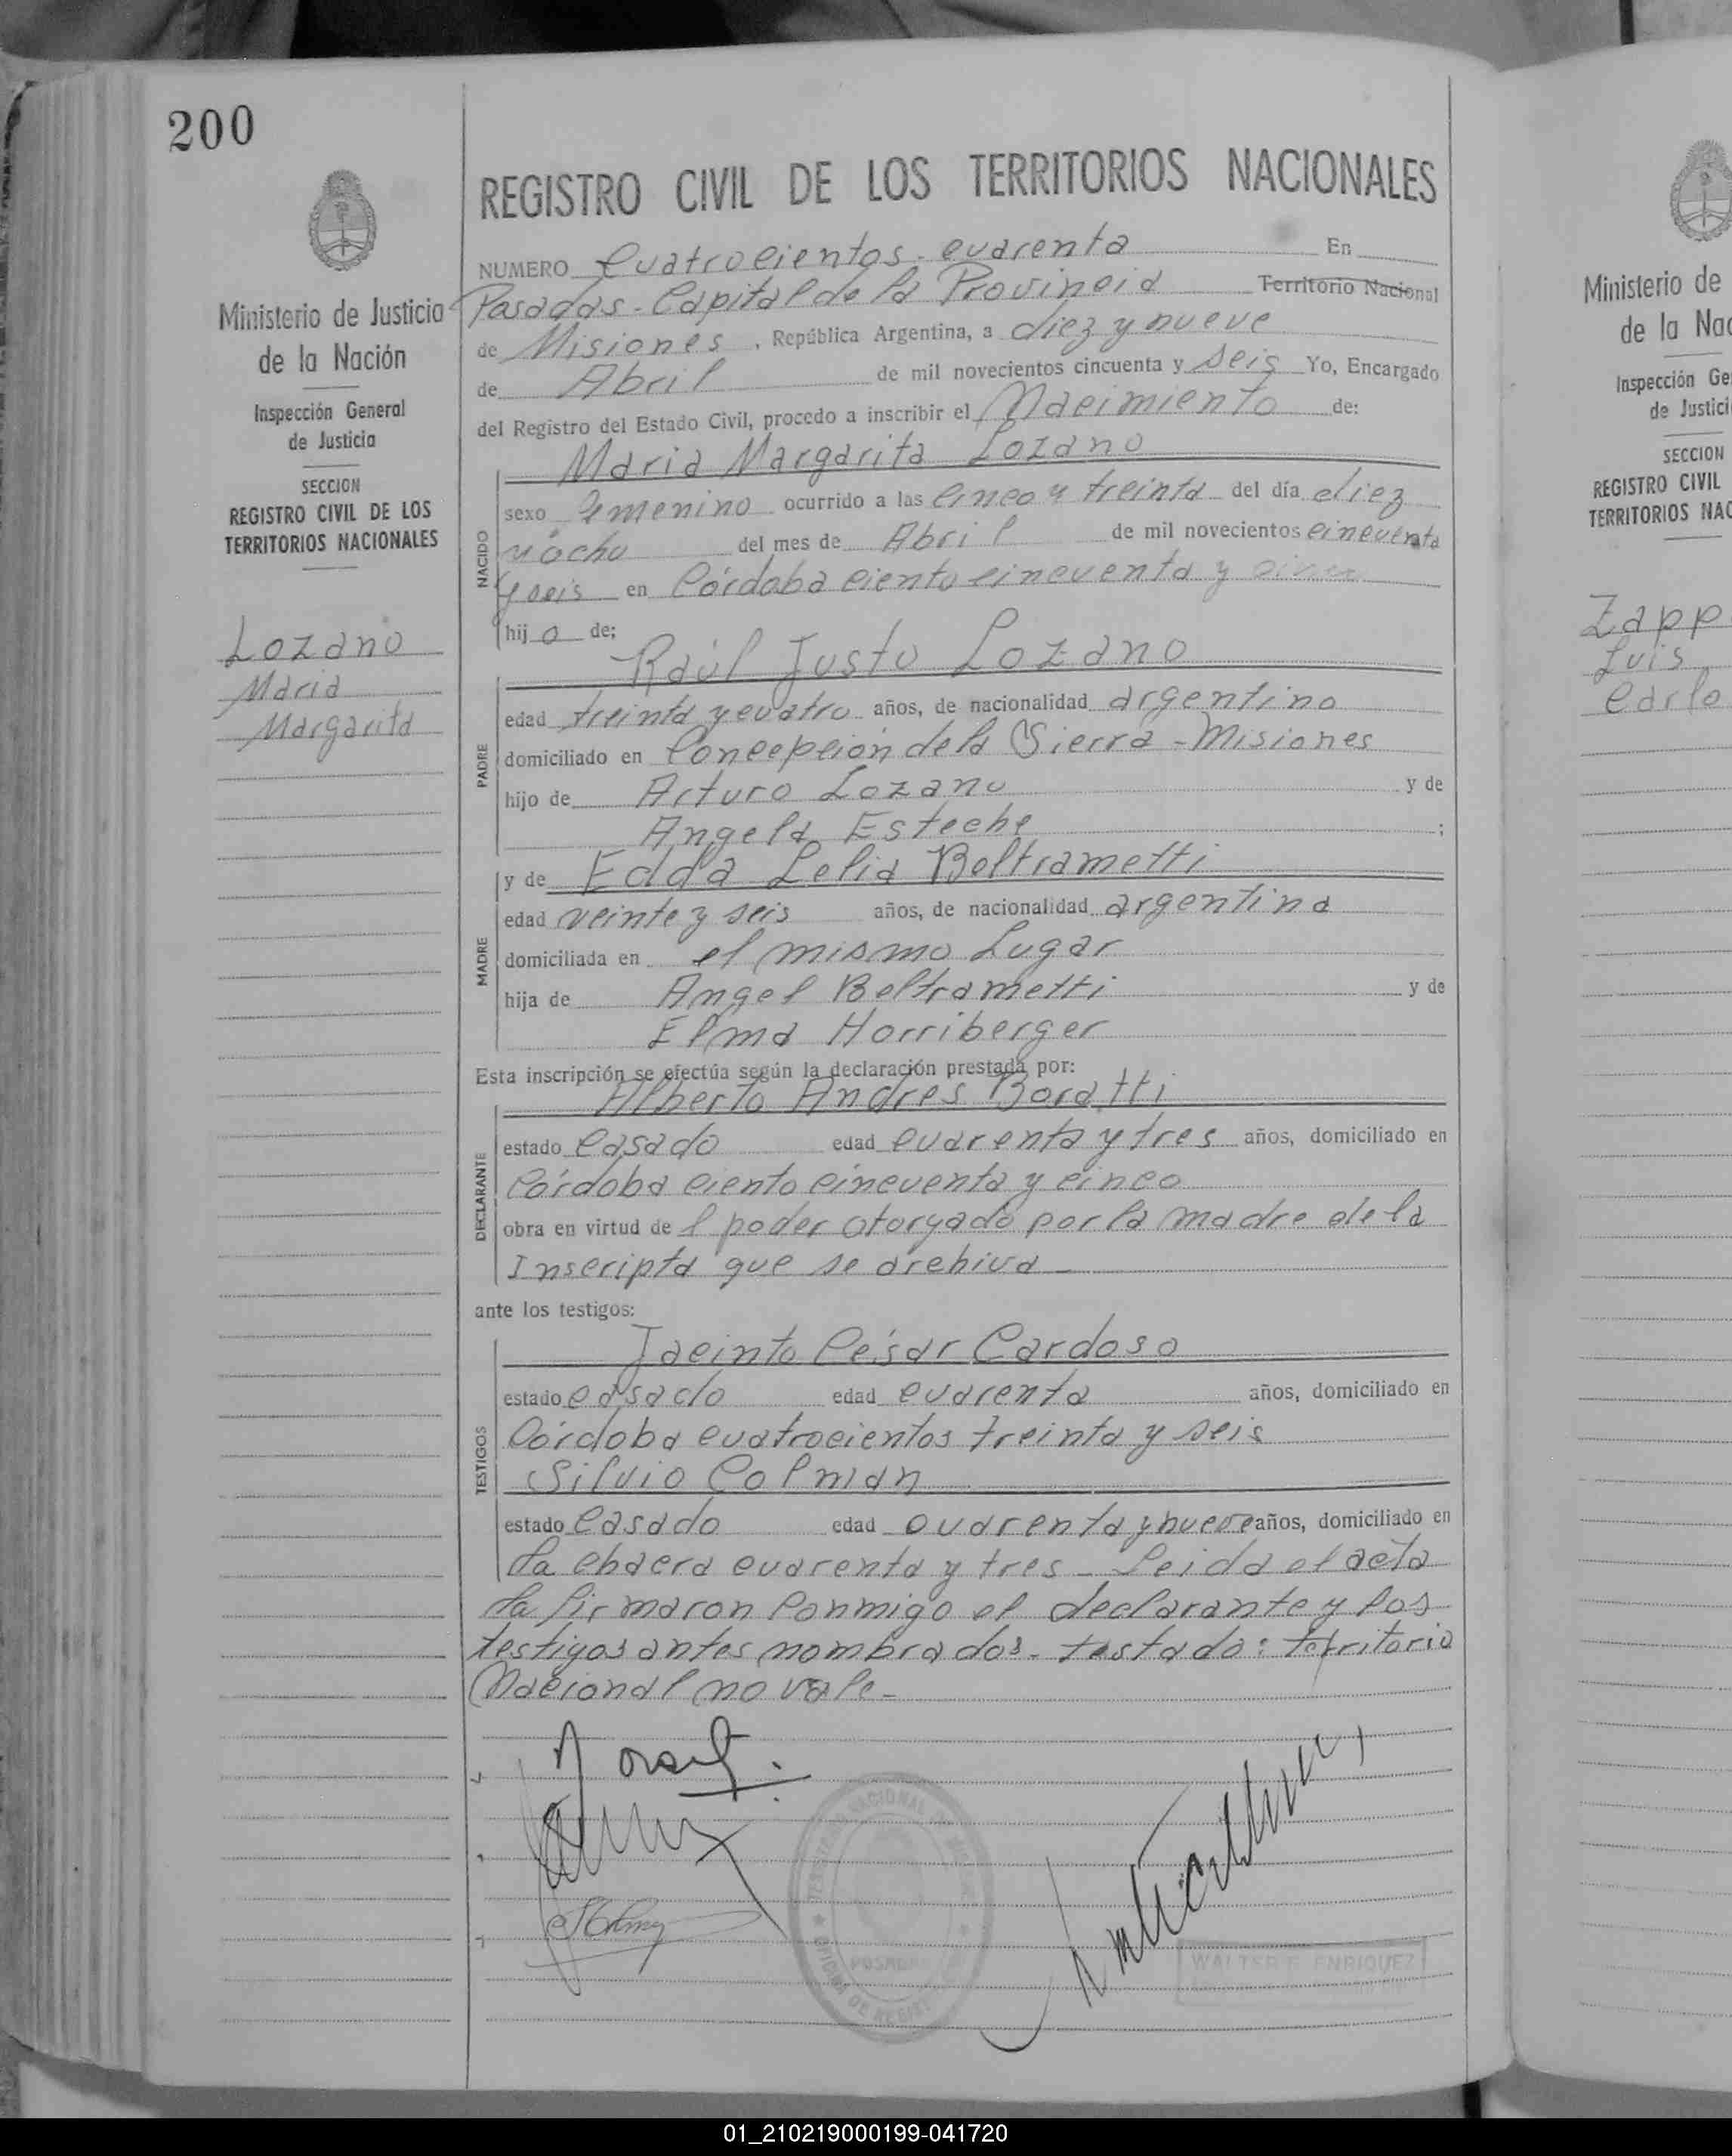 200
REGISTRO CIVIL DE LOS TERRITORIOS NACIONALES
Ministerio de Justicia
de la Nación
Inspección General
de Justicia
SECCION
REGISTRO CIVIL DE LOS
TERRITORIOS NACIONALES
Lozano
Maria
Margarita
NUMERO Cuatrocientos - cuarenta En
Posadas - Capital de la Provincia Territorio Nacional
de Misiones, República Argentina, a diez y nueve
de Abril de mil novecientos cincuenta y seis Yo, Encargado
del Registro del Estado Civil, procedo a inscribir el Nacimiento de:
Maria Margarita Lozano
NACIDO
sexo femenino ocurrido a las cinco y treinta del día diez
y ocho del mes de Abril de mil novecientos cincuenta
y seis en Córdoba ciento cincuenta y cinco
hij a de:
Raúl Justo Lozano
PADRE
edad treinta y cuatro años, de nacionalidad argentino
domiciliado en Concepción de la Sierra - Misiones
hijo de Arturo Lozano y de
Angela Esteche ;
y de Edda Lelia Beltrametti
MADRE
edad veinte y seis años, de nacionalidad argentina
domiciliada en el mismo Lugar
hija de Angel Beltrametti y de
Elma Horriberger
Esta inscripción se efectúa según la declaración prestada por:
Alberto Andrés Boratti
DECLARANTE
estado casado edad cuarenta y tres años, domiciliado en
Córdoba ciento cincuenta y cinco
obra en virtud de l poder otorgado por la madre de la
Inscripta que se archiva -
ante los testigos:
Jacinto César Cardoso
TESTIGOS
estado casado edad cuarenta años, domiciliado en
Córdoba cuatrocientos treinta y seis
Silvio Colman
estado casado edad cuarenta y nueve años, domiciliado en
la chacra cuarenta y tres - Leida el acta
la firmaron Conmigo el declarante y los
testigos antes nombrados - testado: territorio
Nacional no vale -
POSADAS
WALTER E. ENRIQUEZ
Ministerio de
de la Nac
Inspección Ge
de Justici
SECCION
REGISTRO CIVIL
TERRITORIOS NAC
Zapp
Luis
Carlo
01_210219000199-041720